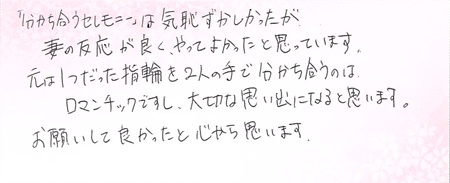 「分かち合うセレモニー」は気恥ずかしかったが、
妻の反応が良く、やってよかったと思っています。
元は1つだった指輪を2人の手で分かち合うのは、
ロマンチックですし、大切な思い出になると思います。
お願いして良かったと心から思います.